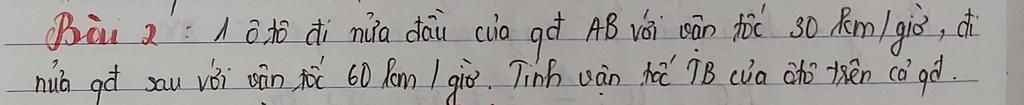 Bài 2 : 1 ô tô đi nửa đầu của qđ AB với vận tốc 30 km/giờ, đi
nửa qđ sau với vận tốc 60 km/giờ. Tính vận tốc TB của ôtô trên cả qđ.